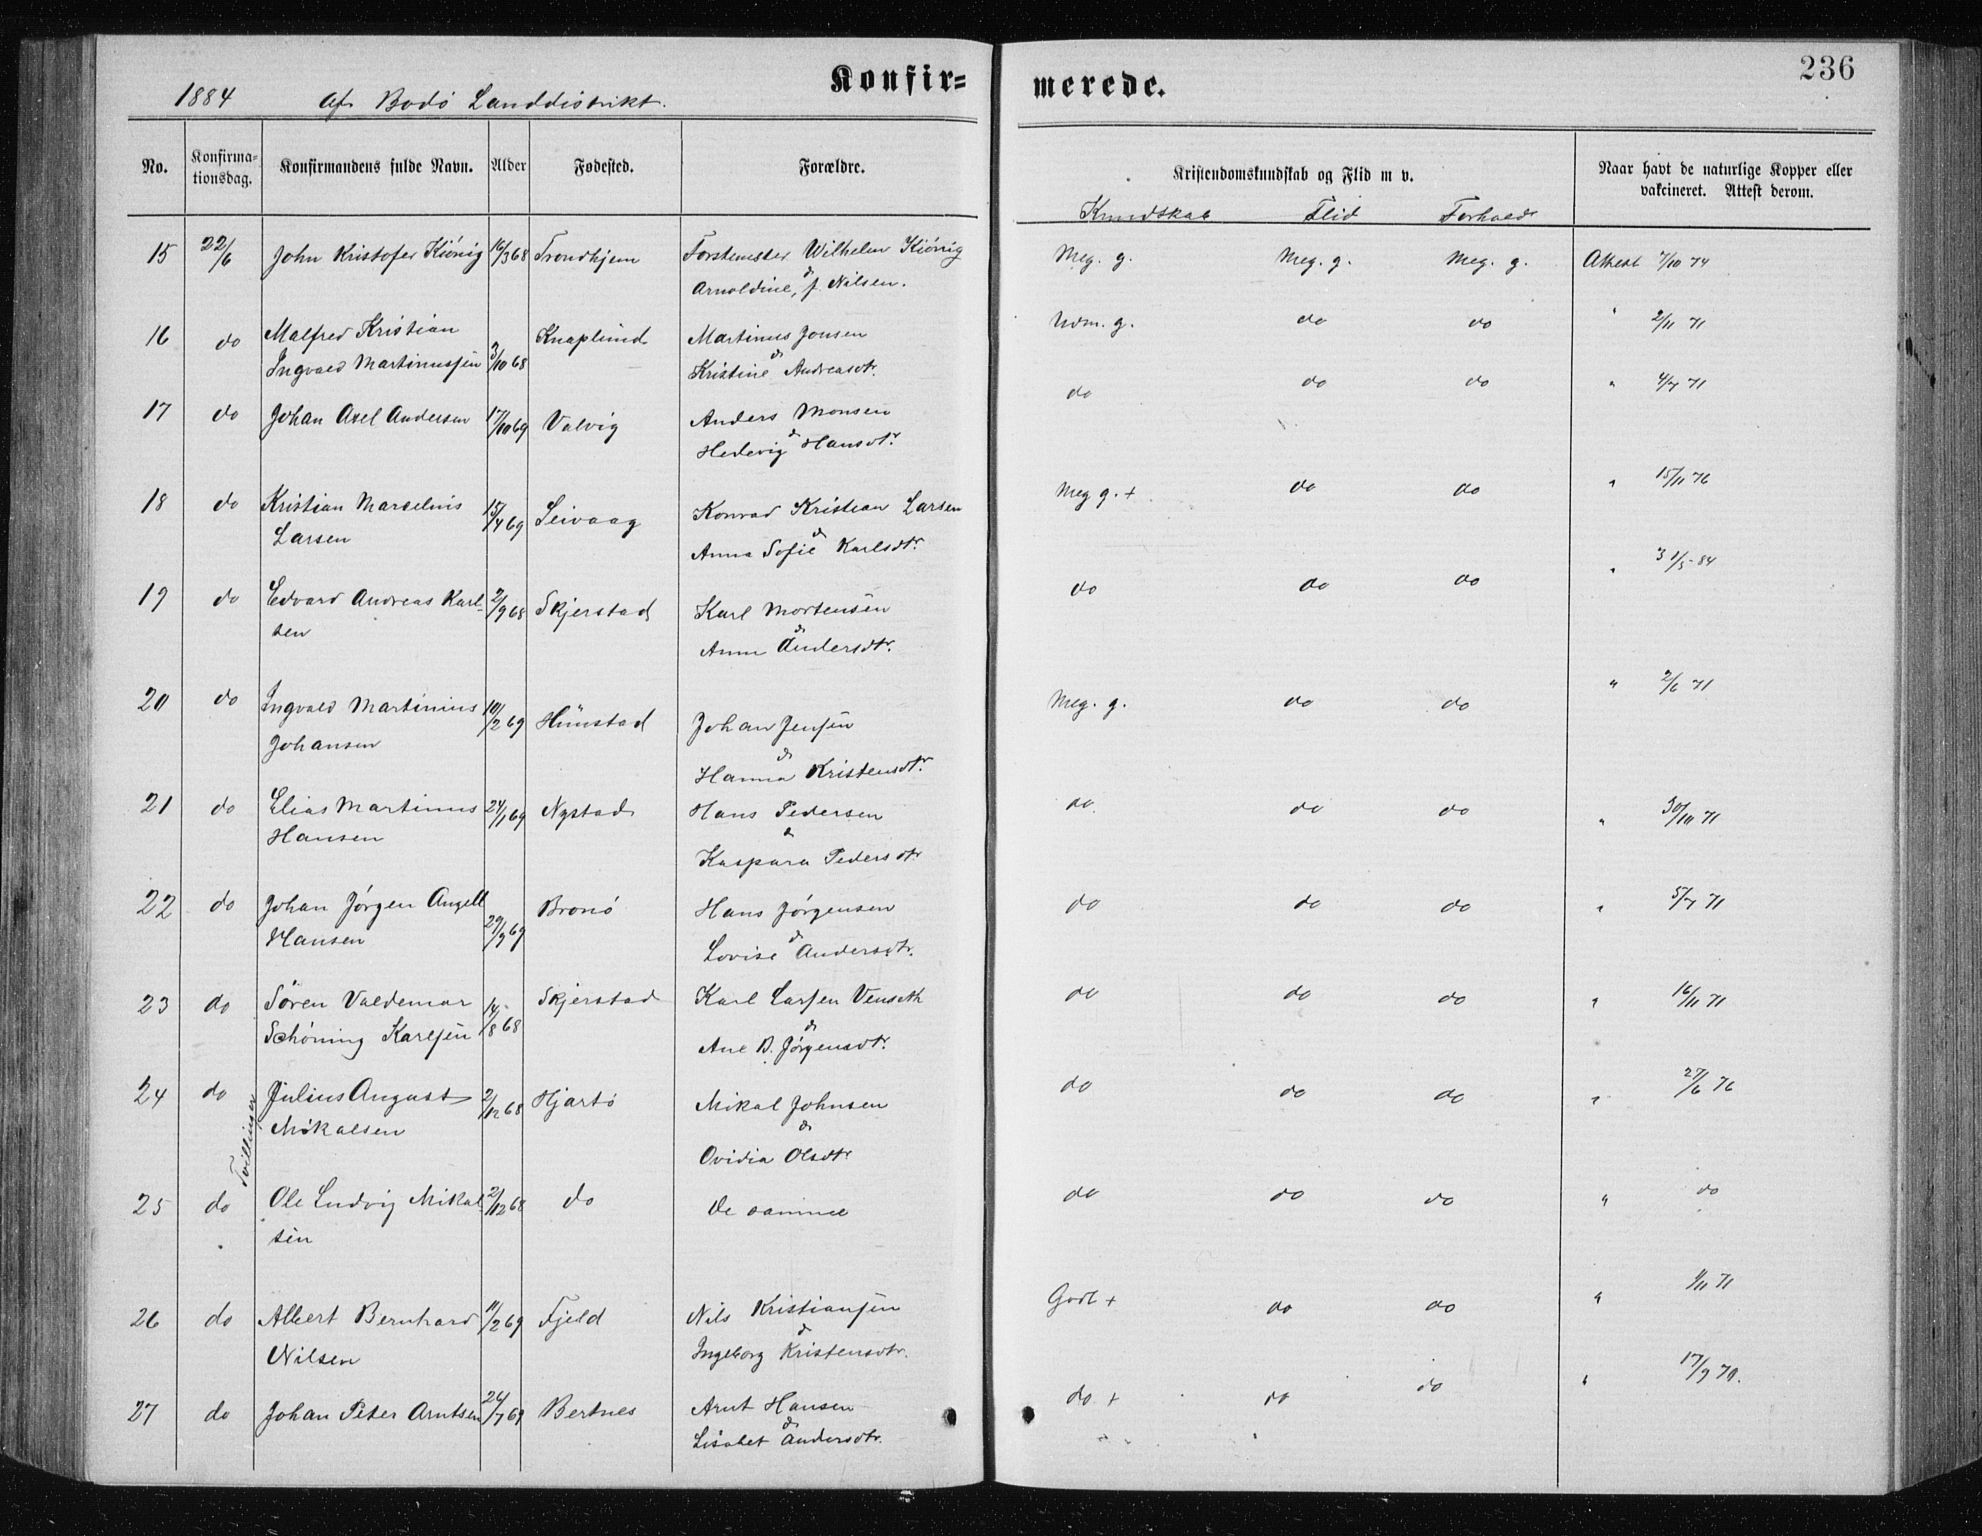 236
Konfir=
merede.
1884 af Bodø Landdistrikt.
No.
Konfirma-
tionsdag.
Konfirmandens fulde Navn.
Alder
Fødested.
Forældre.
Kristendomskundskab og Flid m v.
Naar havt de naturlige Kopper eller
vakcineret. Attest derom.
Kundskab Flid Forhold
15 22/6 John Kristofer Kiönig 16/3 68 Trondhjem Forstmester Wilhelm Kiönig Meg. g. Meg. g. Meg. g. Attest 7/10 74
Arnoldine, f. Nilsen.
16 do Malfred Kristian Knaplund Martinus Jonsen Udm. g. do do " 2/11 71
Ingvald Martinussen 3/10 68 Kristine Andreasdtr.
17 do Johan Axel Andersen 17/10 69 Valvig Anders Monsen do do do " 4/7 71
Hedevig Hansdtr.
18 do Kristian Marselius 15/4 69 Seivaag Konrad Kristian Larsen Meg g. + do do " 15/11 76
Larsen Anna Sofie Karlsdtr.
19 do Edvard Andreas Karl- 2/9 68 Skjerstad Karl Mortensen do do do " 31/5-84
sen Anna Andersdtr.
20 do Ingvald Martinius 10/2 69 Hunstad Johan Jensen Meg. g. do do " 2/6 71
Johansen Hanna Kristensdtr.
21 do Elias Martinus 24/1 69 Nystad Hans Pedersen do do do " 30/10 71
Hansen Kaspara Pedersdtr
22 do Johan Jørgen Angell Bronø Hans Jørgensen do do do " 5/7 71
Hansen 29/9 69 Lovise Andersdtr.
23 do Søren Valdemar 14/8 68 Skjerstad Karl Larsen Venseth do do do " 16/11 71
Schøning Karlsen Ane B. Jørgensdtr.
24 do Julius August 2/12 68 Hjartø Mikal Johnsen do do do " 27/6 76
Mikalsen Ovidia Olsdtr
Tvillinger
25 do Ole Ludvig Mikal- 2/12 68 do De samme do do do " do
sen
26 do Albert Bernhard 11/2 69 Fjeld Nils Kristiansen Godt + do do " 1/11 71
Nilsen Ingeborg Kristensdtr.
27 do Johan Peter Arntsen 24/7 69 Bertnes Arnt Hansen do + do do " 17/9 70.
Lisabet Andersdtr.